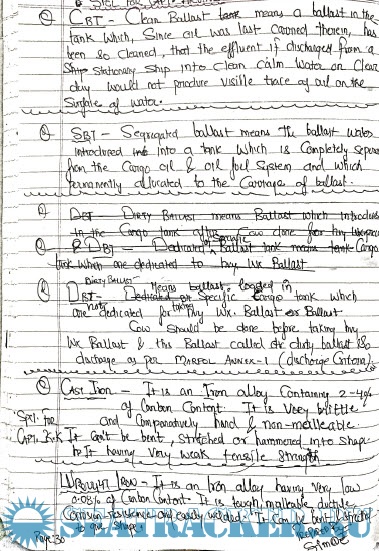 Q CBT - Clean Ballast tank means a ballast in the
tank which, since oil was last carried therein, has
been so cleaned, that the effluent if discharged from a
Ship Stationary Ship into clean calm water on clear
day would not produce visible trace of oil on the
Surface of water.
Q SBT - Segregated ballast means the ballast water
introduced into a tank which is completely separate
from the cargo oil & oil fuel system and which
permanently allocated to the carriage of ballast.
Q DBT - DIRTY BALLAST means Ballast which introduced
in the cargo tank after COW done for hvy weather
Q DBT - Dedicated Ballast tank means tank Cargo
tank which are dedicated to hvy wx Ballast
Q Dirty Ballast means ballast loaded in
DBT - Dedicated or Specific Cargo tank which
are not dedicated for taking hvy wx. Ballast or Ballast
COW should be done before taking hvy
wx Ballast & this Ballast called the dirty ballast &
discharge as per MARPOL ANNEX-1 (discharge Criteria)
Q CAST IRON - It is an Iron alloy containing 2-4%
of Carbon Content. It is very brittle
Spl. For and comparatively hard & non-malleable.
CAPT. K.K It can't be bent, stretched or hammered into shape
It having very weak tensile strength
WROUGHT IRON - It is an Iron alloy having very low
0.08% of Carbon Content. It is tough, malleable, ductile
Corrosion resistance and easily welded. It can be bent & stretched
to give shape.
Page 30